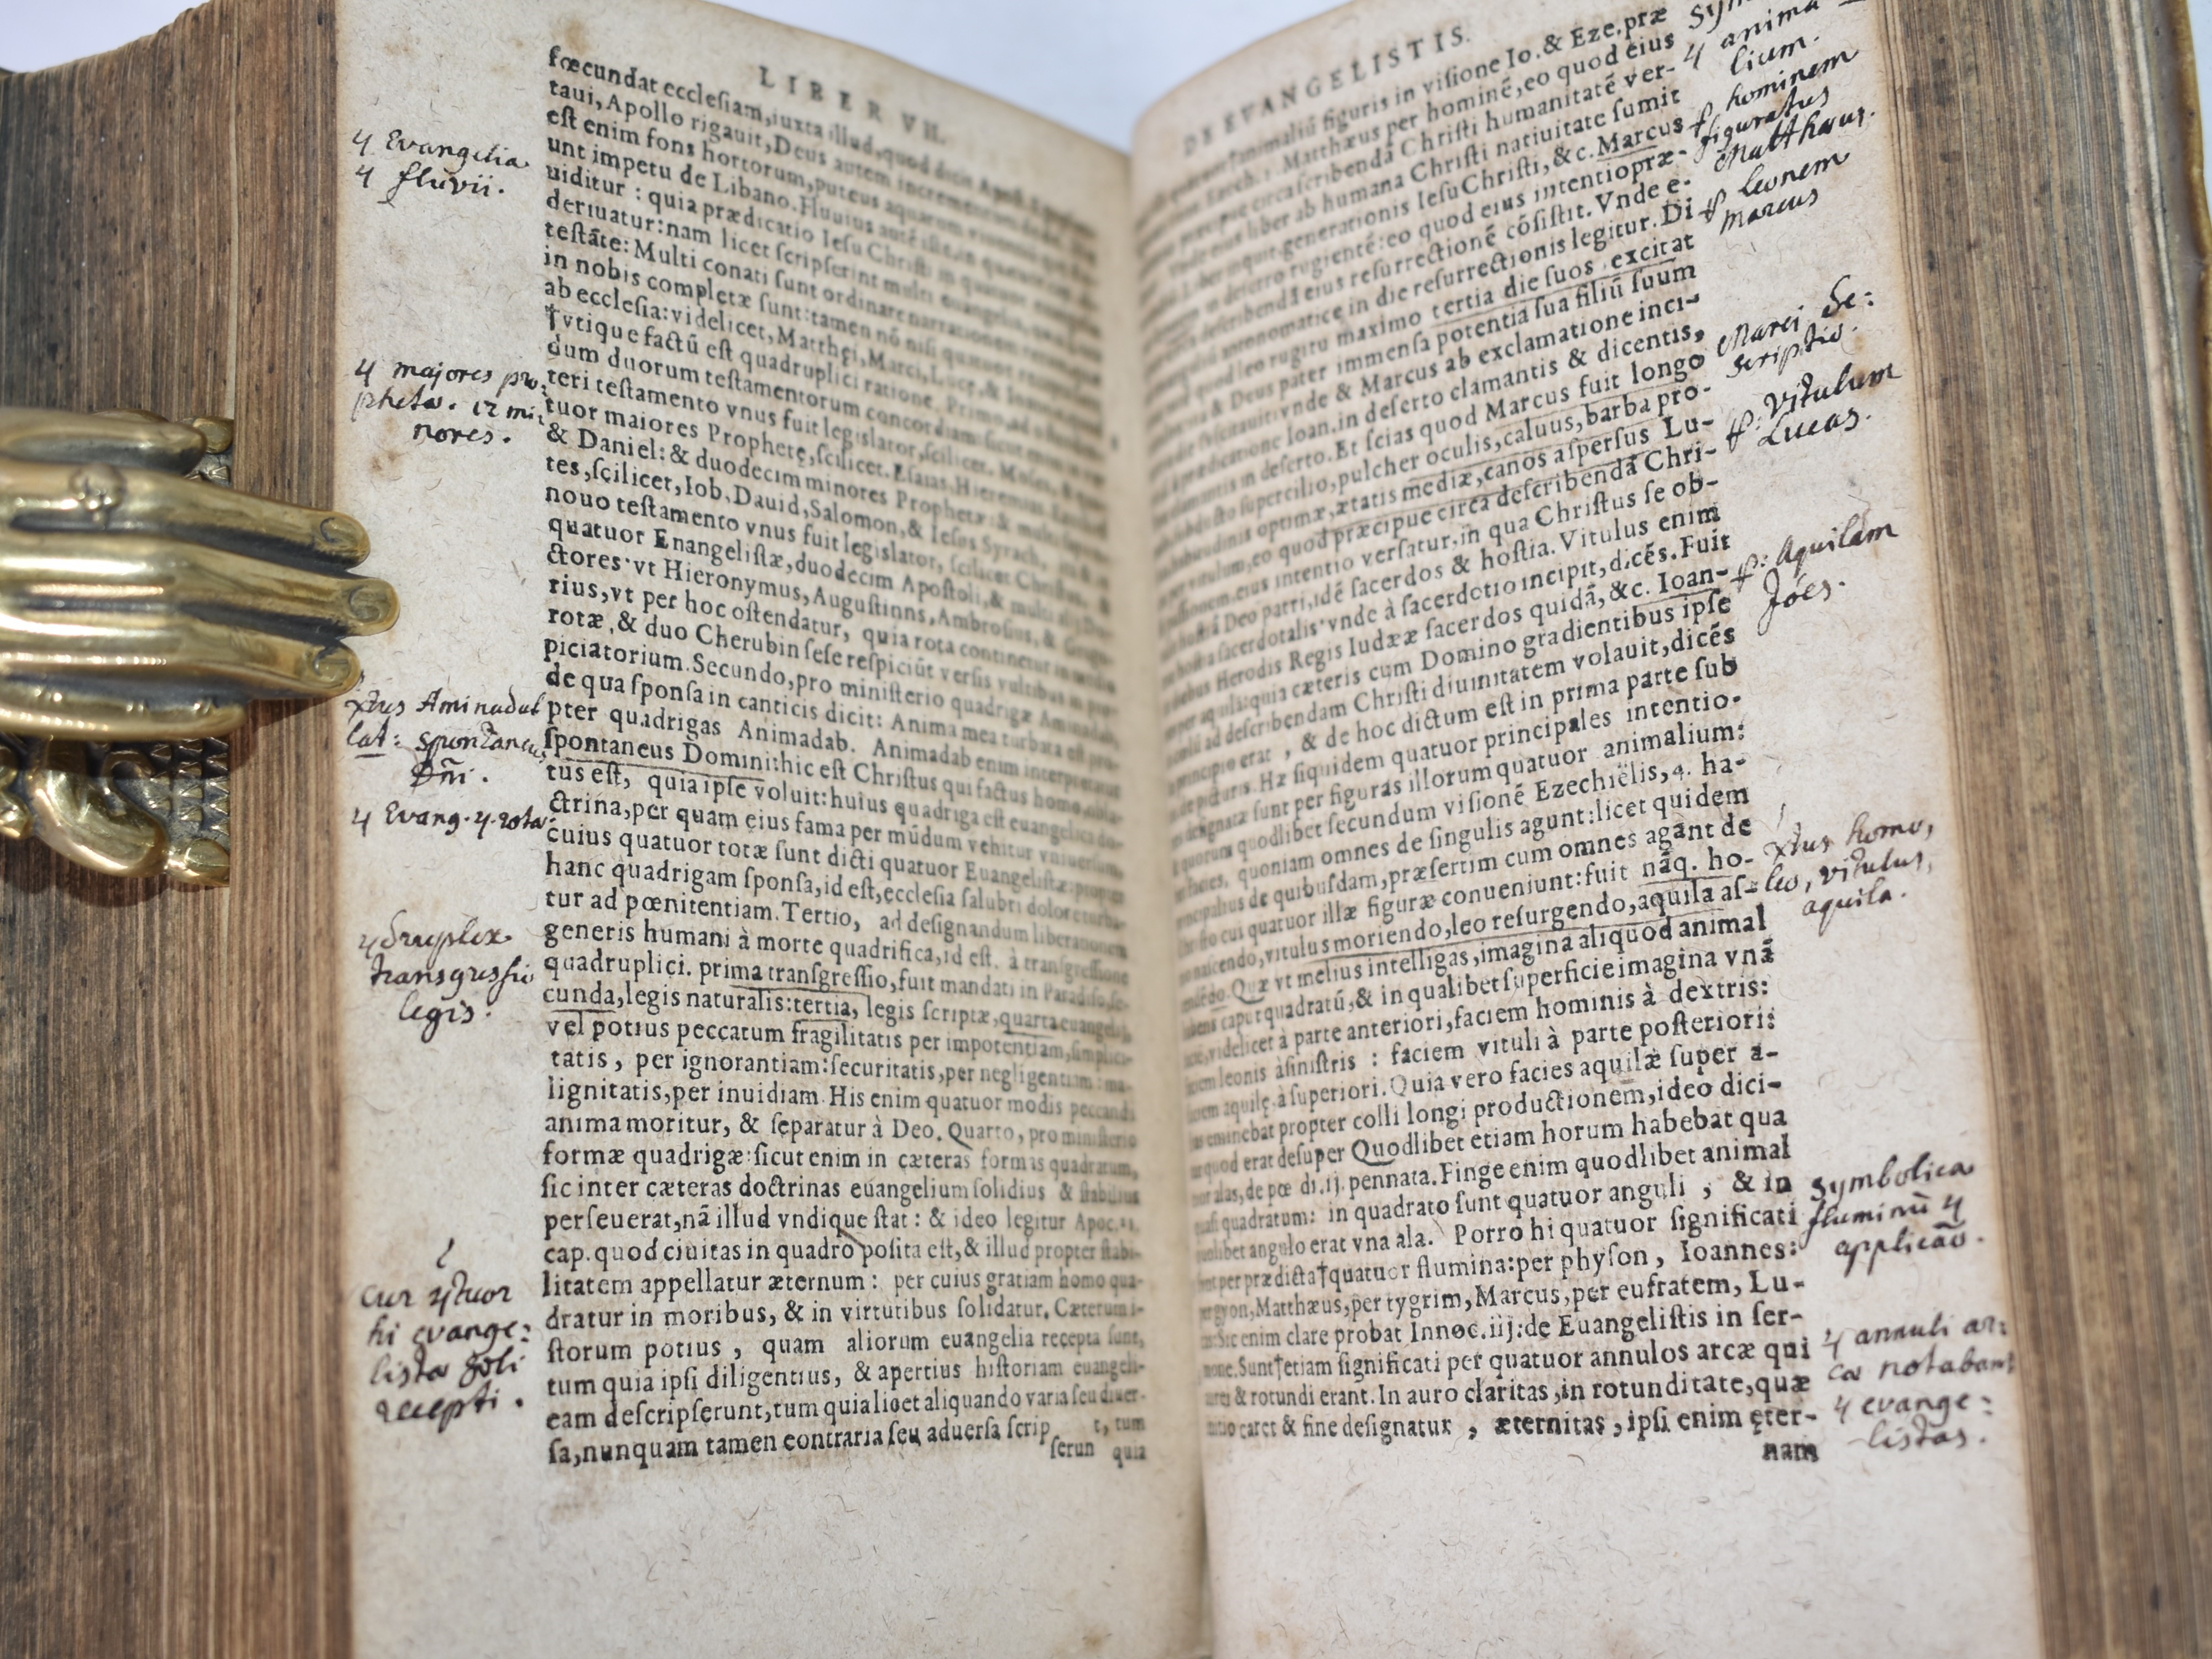 LIBER VII.
fœcundat ecclesiam, iuxta illud, quod dicit Apost.
taui, Apollo rigauit, Deus autem incrementum
est enim fons hortorum, puteus aquarum
unt impetu de Libano. Huius autē
uiditur : quia prædicatio Iesu Christi in quatuor
deriuatur: nam licet scripserint multi euangelia
testāte: Multi conati sunt ordinare narrationem
in nobis completæ sunt: tamen nō nisi quatuor
ab ecclesia: videlicet, Matthęi, Marci, Lucę, &
†vtique factū est quadruplici ratione. Primo, ad
dum duorum testamentorum concordiam: sicut enim
teri testamento vnus fuit legislator, scilicet. Moses,
tuor maiores Prophetę, scilicet. Esaias, Hieremias,
& Daniel: & duodecim minores Prophetæ: &
tes, scilicet, Iob, Dauid, Salomon, & Iesus Syrach
nouo testamento vnus fuit legislator, scilicet Christus,
quatuor Enangelistæ, duodecim Apostoli, & multi
ctores· vt Hieronymus, Augustinns, Ambrosius, &
rius, vt per hoc ostendatur, quia rota continetur in medio
rotæ, & duo Cherubin sese respiciūt versis vultibus in pro-
piciatorium. Secundo, pro ministerio quadrigæ
de qua sponsa in canticis dicit: Anima mea turbata est pro-
pter quadrigas Animadab. Animadab enim interpretatur
spontaneus Domini: hic est Christus qui factus homo,
tus est, quia ipse voluit: huius quadriga est euangelica do-
ctrina, per quam eius fama per mūdum vehitur vniuersum,
cuius quatuor totæ sunt dicti quatuor Euangelistæ: propter
hanc quadrigam sponsa, id est, ecclesia salubri dolore turba-
tur ad pœnitentiam. Tertio, ad designandum liberationem
generis humani à morte quadrifica, id est. à transgressione
quadruplici. prima transgressio, fuit mandati in Paradiso, se-
cunda, legis naturalis: tertia, legis scriptæ, quarta euangelij,
vel potius peccatum fragilitatis per impotentiam, simplici-
tatis, per ignorantiam: securitatis, per negligentiam: ma-
lignitatis, per inuidiam. His enim quatuor modis peccandi
anima moritur, & separatur à Deo. Quarto, pro ministerio
formæ quadrigæ: sicut enim in cæteras formas quadratum,
sic inter cæteras doctrinas euangelium solidius & stabilius
perseuerat, nā illud vndique stat: & ideo legitur Apoc.
cap. quod ciuitas in quadro posita est, & illud propter stabi-
litatem appellatur æternum: per cuius gratiam homo qua-
dratur in moribus, & in virtutibus solidatur. Cæterum i-
storum potius, quam aliorum euangelia recepta sunt,
tum quia ipsi diligentius, & apertius historiam euangeli-
eam descripserunt, tum quia licet aliquando varia seu diuer-
sa, nunquam tamen contraria seu aduersa scrip t, tum
serun quia
4 Evangelia
4 fluvii.
4 majores pro:
pheta. 12 mi:
nores.
xtus Aminadab
lat: spontaneus
Dñi.
4 Evang. 4 rota
4druplex
transgressio
legis.
cur 4tuor
hi evange:
lista soli
recepti.
DE EVANGELISTIS.
animaliū figuris in visione Io. & Eze. præ
Matthæus per hominē, eo quod eius
præcipue circa scribendā Christi humanitatē ver-
Vnde eius liber ab humana Christi natiuitate sumit
Liber inquit. generationis Iesu Christi, &c. Marcus
in deserto rugientē: eo quod eius intentio præ-
describendā eius resurrectionē cōsistit. Vnde e-
antonomatice in die resurrectionis legitur. Di
quod leo rugitu maximo tertia die suos excitat
& Deus pater immensa potentia sua filiū suum
suscitauit: vnde & Marcus ab exclamatione inci-
prædicatione Ioan. in deserto clamantis & dicentis,
clamantis in deserto. Et scias quod Marcus fuit longo
supercilio, pulcher oculis, caluus, barba pro-
habitudinis optimæ, ætatis mediæ, canos aspersus Lu-
per vitulum, eo quod præcipue circa describendā Chri-
passionem, eius intentio versatur, in qua Christus se ob-
Deo patri, idē sacerdos & hostia. Vitulus enim
hostia sacerdotalis· vnde à sacerdotio incipit, dicēs. Fuit
diebus Herodis Regis Iudææ sacerdos quidā, &c. Ioan-
per aquilā: quia cæteris cum Domino gradientibus ipse
ad describendam Christi diuinitatem volauit, dicēs
principio erat, & de hoc dictum est in prima parte sub
de picturis. Hæ siquidem quatuor principales intentio-
designatæ sunt per figuras illorum quatuor animalium:
quorum quodlibet secundum visionē Ezechiëlis, 4. ha-
facies, quoniam omnes de singulis agunt: licet quidem
principalius de quibusdam, præsertim cum omnes agant de
Christo cui quatuor illæ figuræ conueniunt: fuit nāq. ho-
mo nascendo, vitulus moriendo, leo resurgendo, aquila as-
cēdēdo. Quæ vt melius intelligas, imagina aliquod animal
habens caput quadratū, & in qualibet superficie imagina vnā
faciē, videlicet à parte anteriori, faciem hominis à dextris:
faciem leonis à sinistris : faciem vituli à parte posteriori:
faciem aquilę. à superiori. Quia vero facies aquilæ super a-
lias eminebat propter colli longi productionem, ideo dici-
tur quod erat desuper Quodlibet etiam horum habebat qua
tuor alas, de pœ di. ij. pennata. Finge enim quodlibet animal
quasi quadratum: in quadrato sunt quatuor anguli, & in
quolibet angulo erat vna ala. Porro hi quatuor significati
sunt per prædicta †quatuor flumina: per physon, Ioannes:
per gyon, Matthæus, per tygrim, Marcus, per eufratem, Lu-
cas. Sic enim clare probat Innoc. iij: de Euangelistis in ser-
mone. Sunt †etiam significati per quatuor annulos arcæ qui
aurei & rotundi erant. In auro claritas, in rotunditate, quæ
initio caret & fine designatur, æternitas, ipsi enim ęter-
nam
4 anima
lium.
hominem
figuratus
Matthæus.
leonem
marcus
Marci de:
scriptio.
vitulum
Lucas.
Aquilam
Jóes.
xtus homo,
leo, vitulus,
aquila.
symbolica
fluminū 4
applicāo.
4 annuli ar:
cæ notabant
4 evange:
listas.